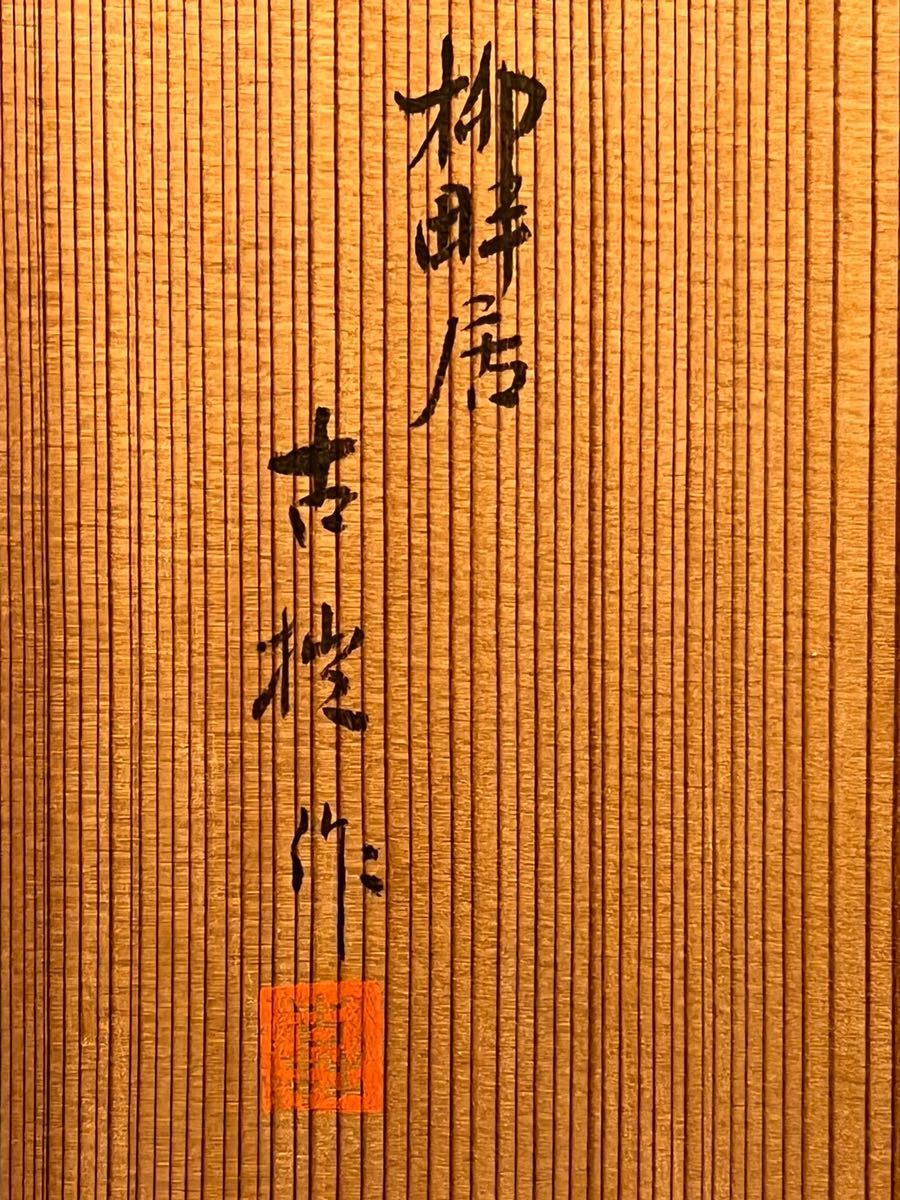 柳畔居
古拙作